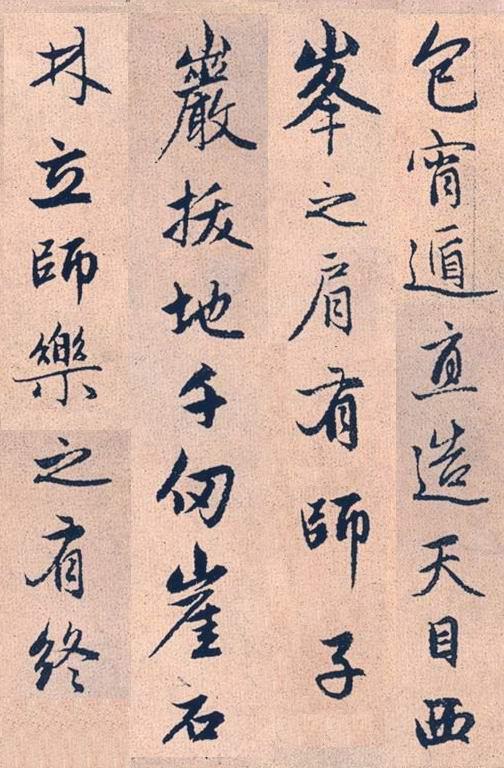 包宵遁直造天目西
峯之肩有師子
巖拔地千仞崖石
林立師樂之有終